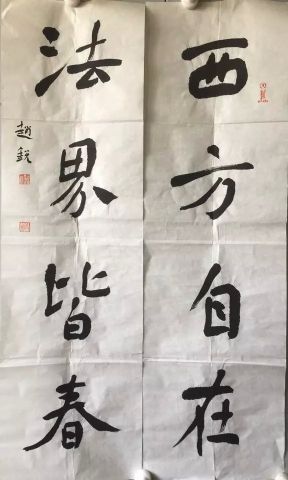 西方自在
法界皆春
趙銳